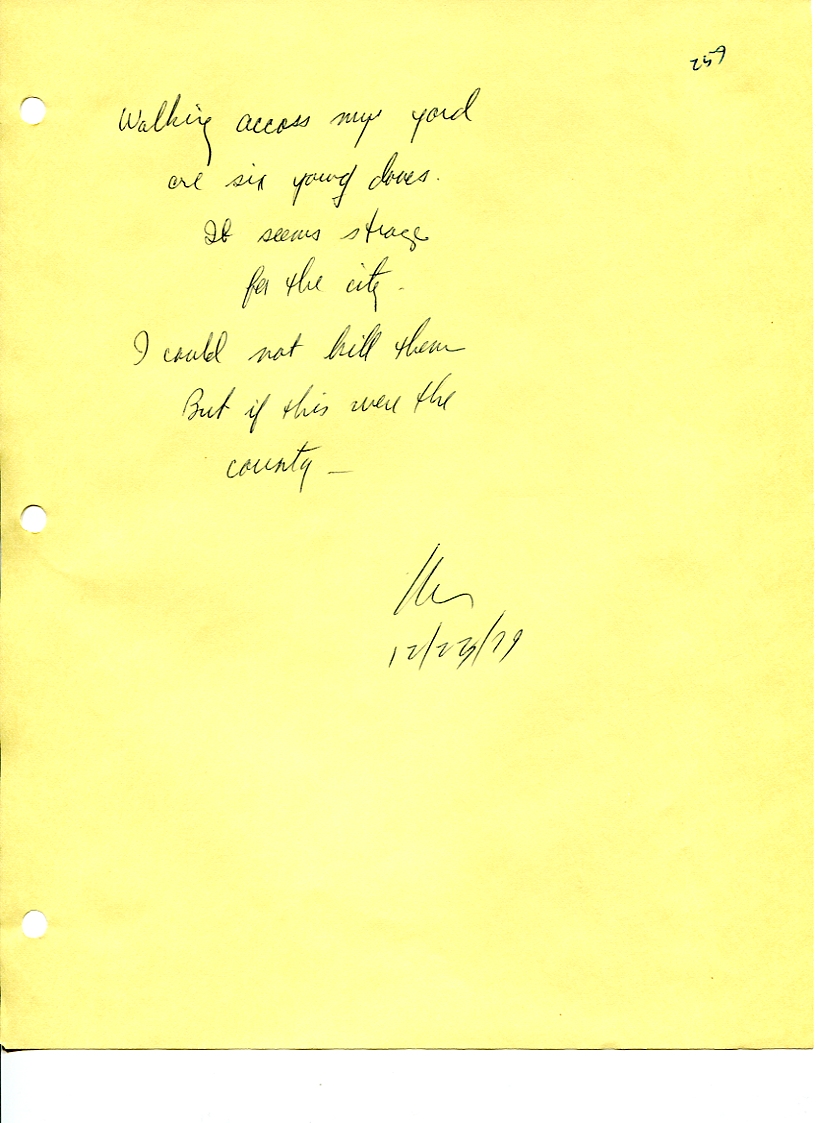 259
Walking across my yard
are six young doves.
It seems strage
for the city.
I could not kill them
But if this were the
county —
12/23/79